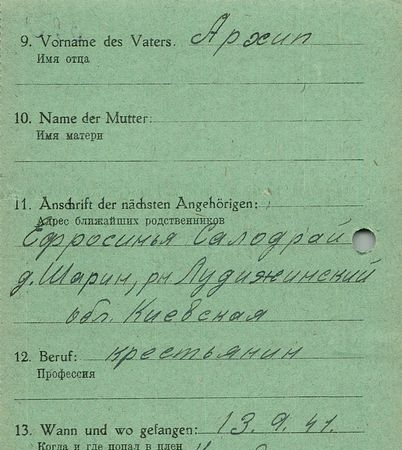 9. Vorname des Vaters. Архип
Имя отца
10. Name der Mutter:
Имя матери
11. Anschrift der nächsten Angehörigen:
Адрес ближайших родственников
Ефросинья Салодрай
д. Шарин, рн Лудижинский
обл. Киевская
12. Beruf: крестьянин
Профессия
13. Wann und wo gefangen: 13.9.41.
Когда и где попал в плен